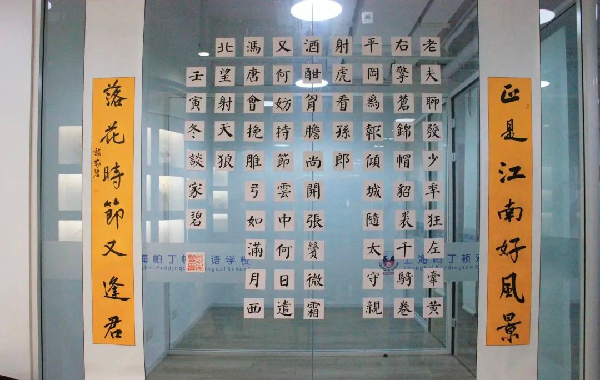 正是江南好風景
老夫聊發少年狂左牽黃
右擎蒼錦帽貂裘千騎卷
平岡為報傾城隨太守親
射虎看孫郎
酒酣胷膽尚開張鬢微霜
又何妨持節雲中何日遣
馮唐會挽雕弓如滿月西
北望射天狼
壬寅冬談家碧
落花時節又逢君
談家碧
海帕丁 语学校
上海帕丁顿双